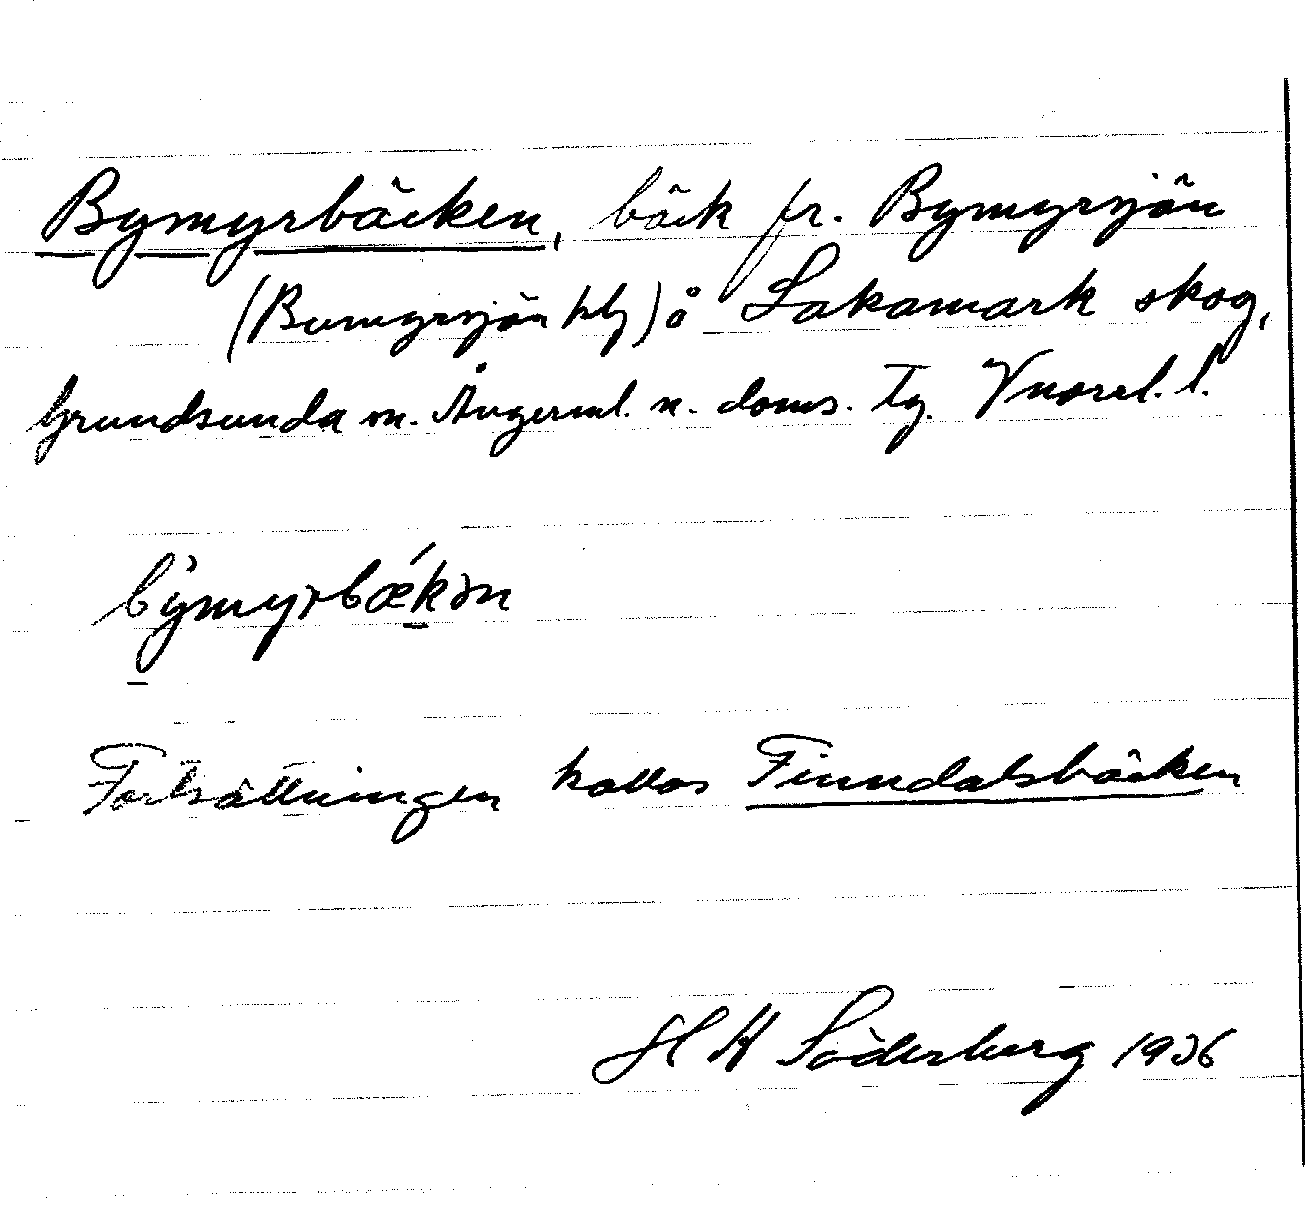 Bymyrbäcken, bäck fr. Bymyrsjön
(Bumyrsjön kbl) å Lakamark skog,
Grundsunda sn. Ångerml. n. doms. tg. Vnorrl. l.
bymyrbækən
Fortsättningen kallas Finndalsbäcken
H H Söderberg 1936